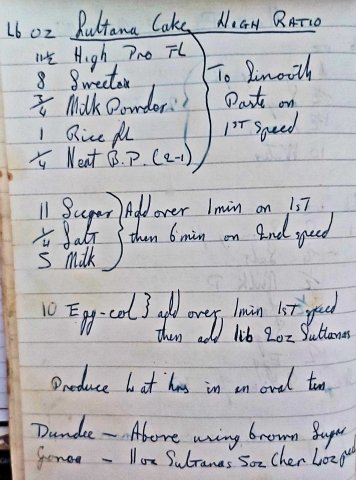 Lb oz Sultana Cake HIGH RATIO
11½ High Pro FL
8 Sweetex
¾ Milk Powder
1 Rice fl
¼ Neat B.P. (2-1)
To Smooth
Paste on
1ST Speed
11 Sugar
¼ Salt
5 Milk
Add over 1 min on 1ST
then 6 min on 2nd speed
10 Egg-col } add over 1 min 1ST speed
then add 1lb 2oz Sultanas
Produce in an oval tin
Dundee - Above using brown Sugar
Genoa - 11oz Sultanas 5oz Cher 4oz peel